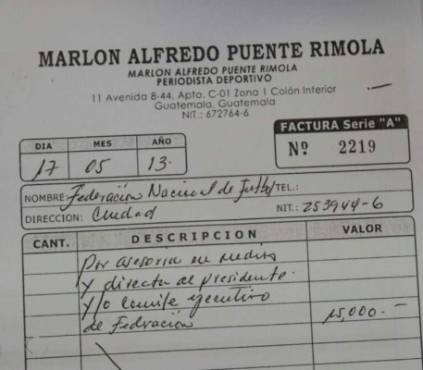 MARLON ALFREDO PUENTE RIMOLA
MARLON ALFREDO PUENTE RIMOLA
PERIODISTA DEPORTIVO
11 Avenida 8-44, Apto. C-01 Zona 1 Colón Interior
Guatemala, Guatemala
NIT.: 672764-6
FACTURA Serie "A"
Nº 2219
DIA MES AÑO
17 05 13.
NOMBRE: Federación Nacional de Futbol TEL.:
DIRECCION: Ciudad NIT.: 253944-6
CANT. DESCRIPCION VALOR
Por asesoria en medios
y directa al presidente.
y/o comite ejecutivo
de Federación 15,000.-